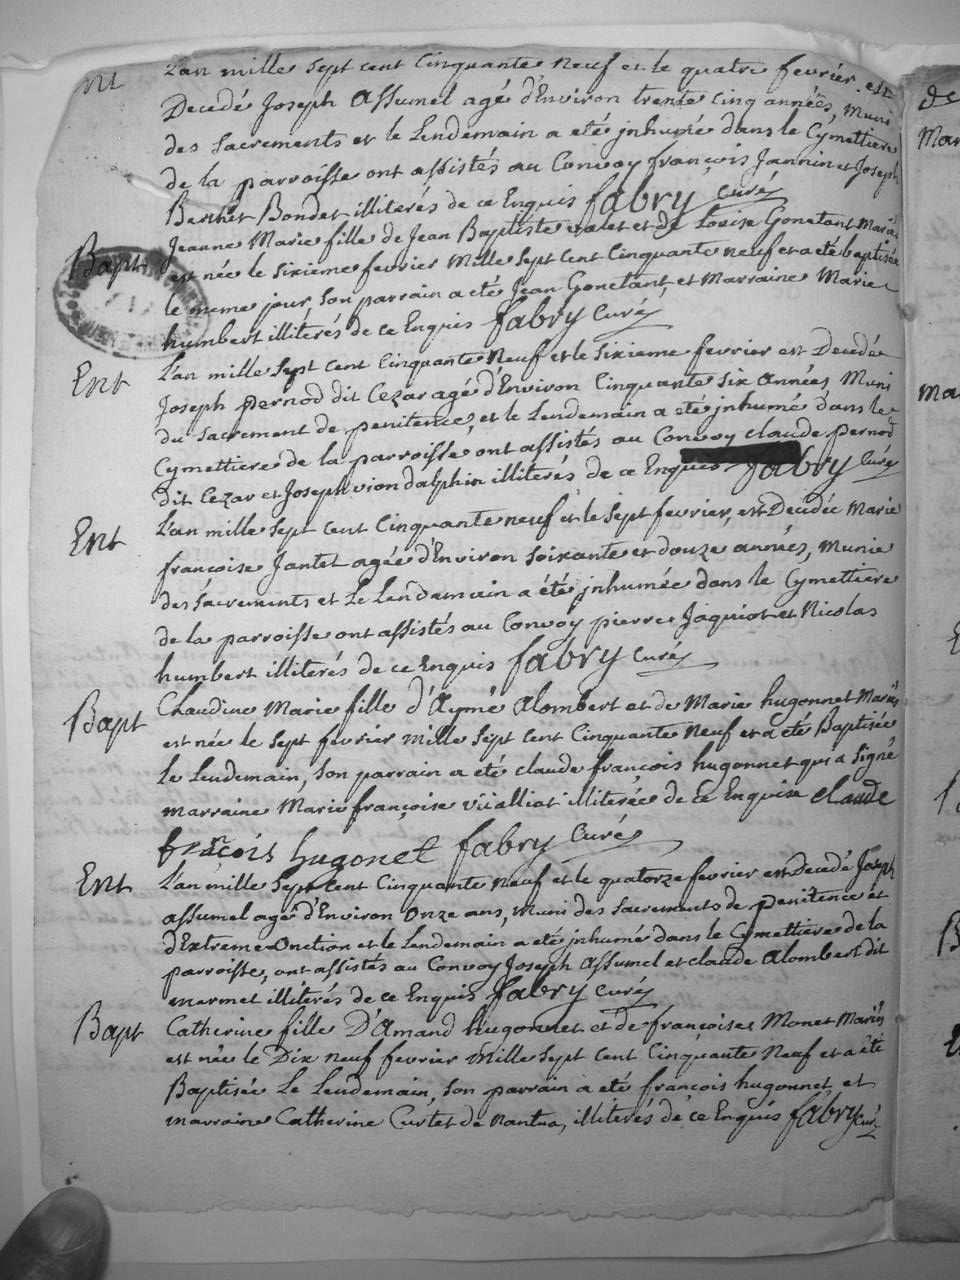 nt
L'an mille sept cent Cinquante Neuf et le quatre fevrier est
Decedé Joseph Assumel agé d'Environ trente cinq années, Muni
des Sacrements et le Lendemain a eté jnhumé dans le Cymettiere
de la parroisse ont assistés au Convoy françois Jannin et Joseph
Berthet Bondet illiterés de ce Enquis fabry Curé
Bapt
Jeanne Marie fille de Jean Baptiste valet et de Louise Gonetant Mariés
est née le Sixieme fevrier Mille Sept Cent Cinquante neuf et a eté baptisée
le meme jour, Son parrain a eté Jean Gonetant et Marraine Marie
humbert illiterés de ce Enquis fabry Curé
Ent
L'an mille Sept Cent Cinquante Neuf et le Sixieme fevrier est Decedé
Joseph pernod dit Cezar agé d'Environ Cinquante Six Années Muni
du Sacrement de penitence, et le Lendemain a eté jnhumé dans le
Cymettiere de la parroisse ont assistés au Convoy claude pernod
dit Cezar et Joseph vion dalphin illiterés de ce Enquis fabry Curé
Ent
L'an mille Sept Cent Cinquante neuf et le Sept fevrier, est Decedée Marie
françoise Jantet agée d'Environ Soixante et douze années, Munie
des Sacrements et Le Lendemain a été jnhumée dans le Cymettiere
de la parroisse ont assistés au Convoy pierre Jaquiot et Nicolas
humbert illiterés de ce Enquis fabry Curé
Bapt
Claudine Marie fille d'Aymé Alombert et de Marie hugonnet Mariés
est née le Sept fevrier Mille Sept Cent Cinquante Neuf et a été Baptisée
Le Lendemain, Son parrain a eté claude françois hugonnet qui a Signé
marraine Marie françoise illiterée de ce Enquise claude
françois hugonet fabry Curé
Ent
L'an mille Sept Cent Cinquante Neuf et le quatorze fevrier est Decedé Joseph
assumel agé d'Environ Onze ans, Muni des Sacrements de penitence et
d'Extreme Onction et le Lendemain a eté jnhumé dans le Cymettiere de la
parroisse, ont assistés au Convoy Joseph Assumel et claude Alombert dit
marmet illiterés de ce Enquis fabry Curé
Bapt
Catherine fille D'Amand hugonnet et de françoise Monet Mariés
est née le Dix neuf fevrier Mille Sept Cent Cinquante Neuf et a été
Baptisée Le Lendemain, Son parrain a eté françois hugonnet et
marraine Catherine Curtet de Nantua, illiterés de ce Enquis fabry Curé